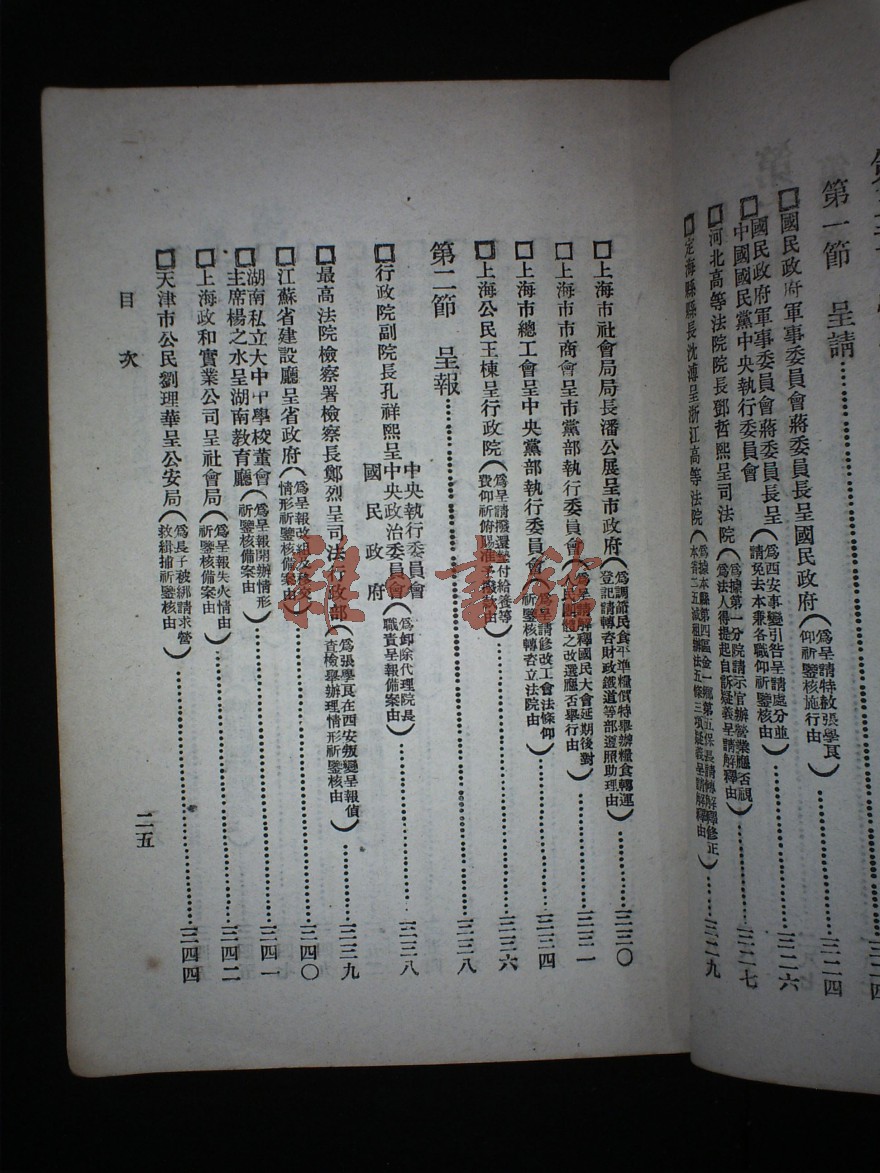 第一節　呈請……三二四
□國民政府軍事委員會蔣委員長呈國民政府（爲呈請特赦張學良仰祈鑒核施行由）……三二四
□國民政府軍事委員會蔣委員長呈中國國民黨中央執行委員會（爲西安事變引咎呈請處分並請免去本兼各職仰祈鑒核由）……三二六
□河北高等法院院長鄧哲熙呈司法院（爲據第一分院請示官辦營業應否視爲法人得提起自訴疑義呈請解釋由）……三二七
□定海縣縣長沈溥呈浙江高等法院（爲據本縣第四區金一鄉第五保長請轉解釋修正本省二五減租辦法五條三項疑義呈請解釋由）……三二九
□上海市社會局局長潘公展呈市政府（爲調節民食平準糧價特舉辦糧食轉運登記請轉咨財政鐵道等部遵照助理由）……三三〇
□上海市市商會呈市黨部執行委員會（爲呈請解釋國民大會延期後對人民團體之改選應否舉行由）……三三一
□上海市總工會呈中央黨部執行委員會（爲呈請修改工會法條仰祈鑒核轉咨立法院由）……三三四
□上海公民王棟呈行政院（爲呈請撥還墊付給養等費仰祈俯賜准予撥款由）……三三六
第二節　呈報……三三八
□行政院副院長孔祥熙呈中央執行委員會中央政治委員會國民政府（爲卸除代理院長職責呈報備案由）……三三八
□最高法院檢察署檢察長鄭烈呈司法行政部（爲張學良在西安叛變呈報偵查檢舉辦理情形祈鑒核由）……三三九
□江蘇省建設廳呈省政府（爲呈報改組及移交情形祈鑒核備案由）……三四〇
□湖南私立大中中學校董會主席楊之水呈湖南教育廳（爲呈報開辦情形祈鑒核備案由）……三四一
□上海政和實業公司呈社會局（爲呈報失火情由祈鑒核備案由）……三四二
□天津市公民劉理華呈公安局（爲長子被綁請求營救緝捕祈鑒核由）……三四四
目　次
二五